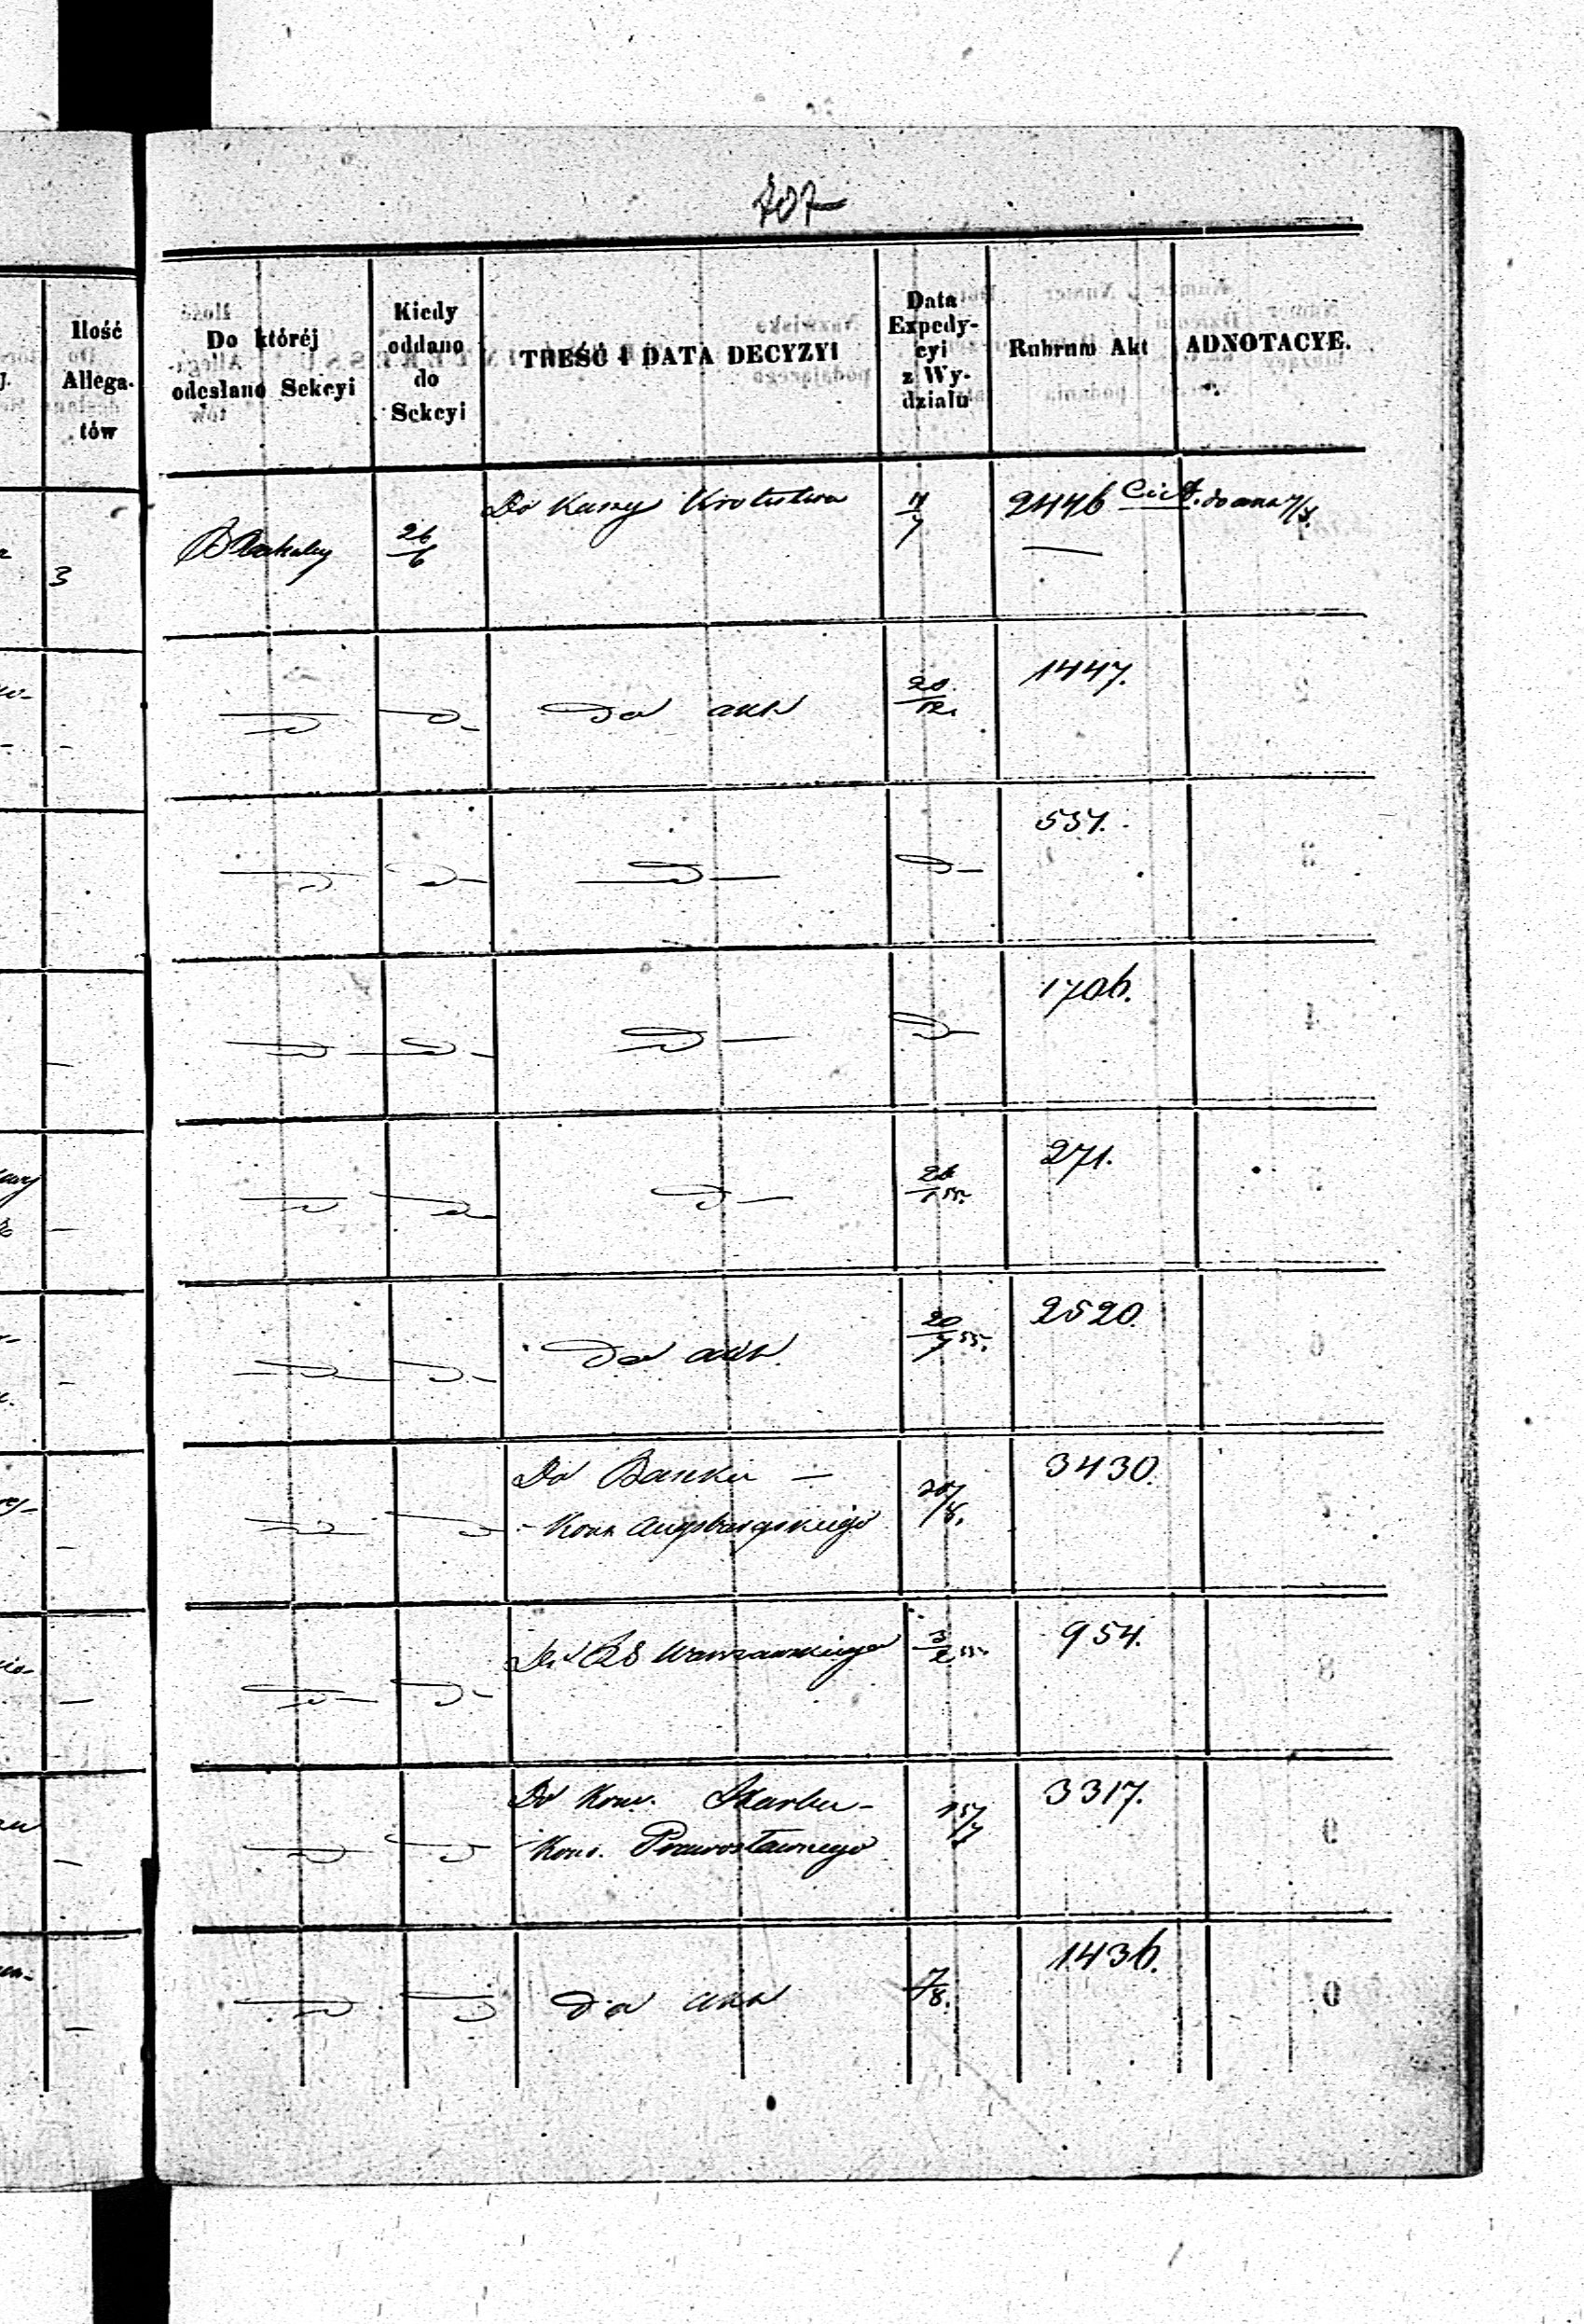 707
Ilość Allega- tów
Do któréj odesłano Sekcyi
Kiedy oddano do Sekcyi
TREŚĆ I DATA DECYZYI
Data Expedy- cyi z Wy- działu
Rubrum Akt
ADNOTACYE.
3
26/6
Do Kassy
11/7
2446
Do akt
20/12.
1447.
537.
1706.
271.
Do akt
20/7 55.
2520.
Do Banku —
- Kons Augsburgskiego
20/8.
3430.
Warszawskiego
3/2 55.
954.
Do Kom. Skarbu -
- Kons. Prawosławnego
15/7
3317.
Do akt
7/8.
1436.